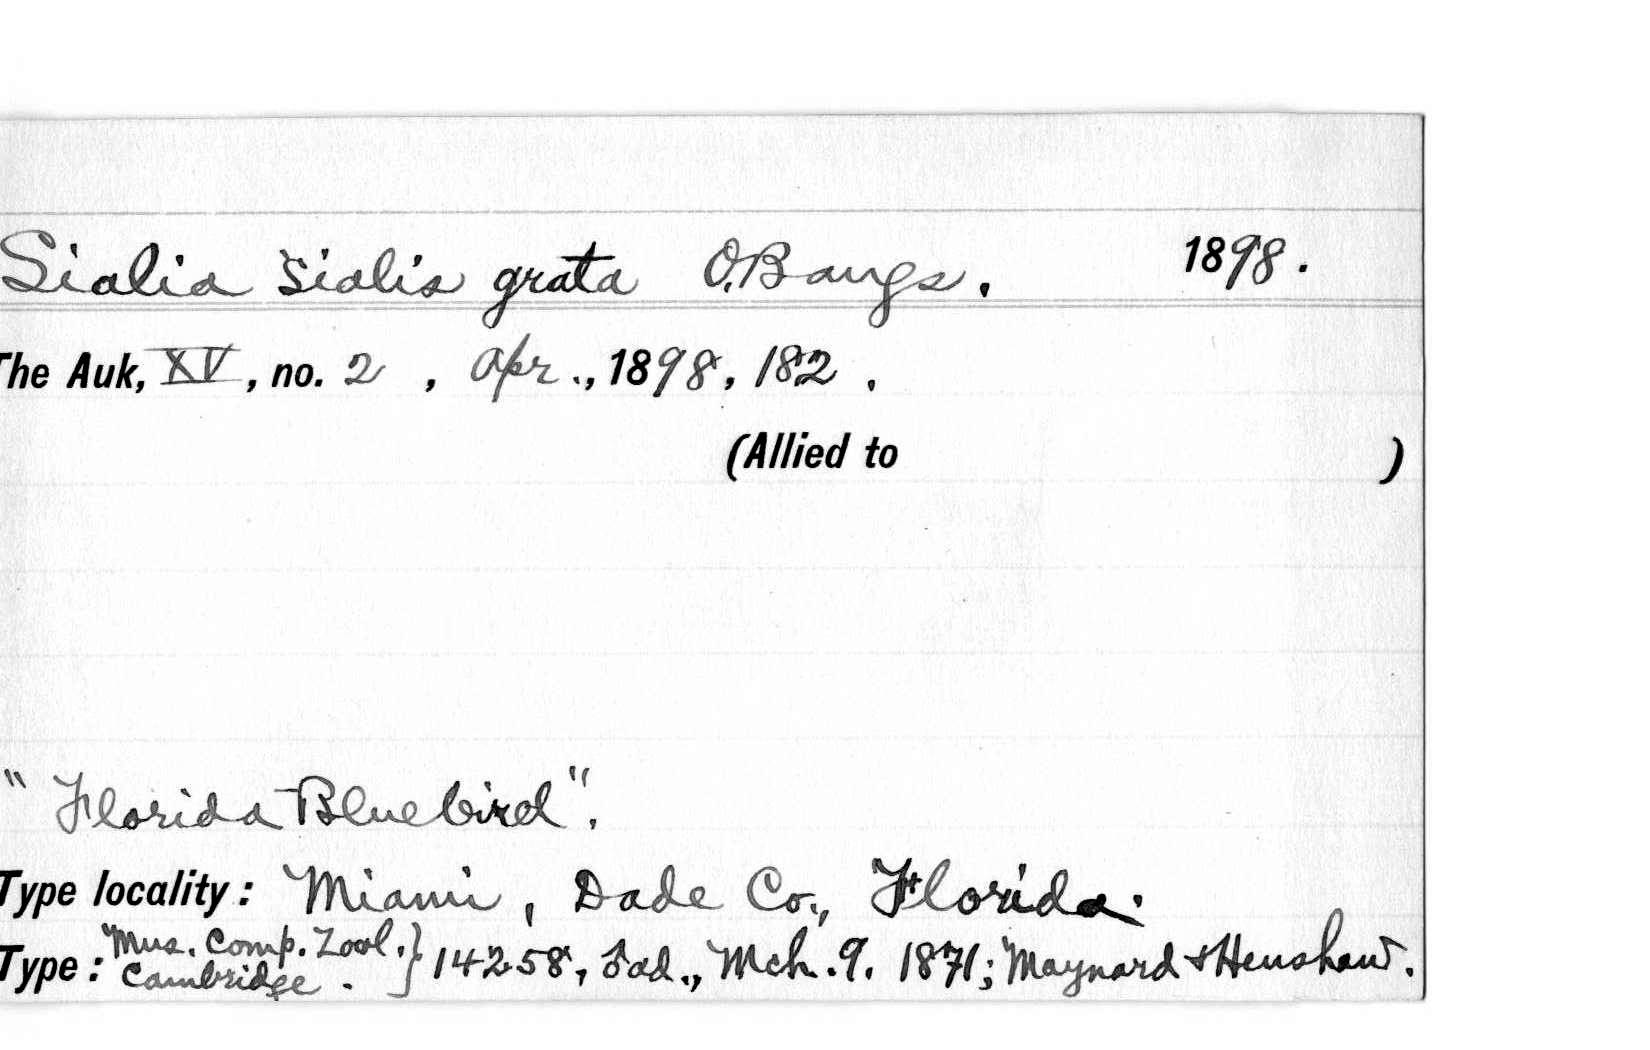 Sialia sialis grata O.Bangs. 1898.
The Auk, XV, no. 2, Apr., 1898, 182.
(Allied to )
"Florida Bluebird".
Type locality: Miami, Dade Co., Florida.
Type: Mus. Comp. Zool. Cambridge. } 14258, ad., Mch. 9. 1871; Maynard & Henshaw.